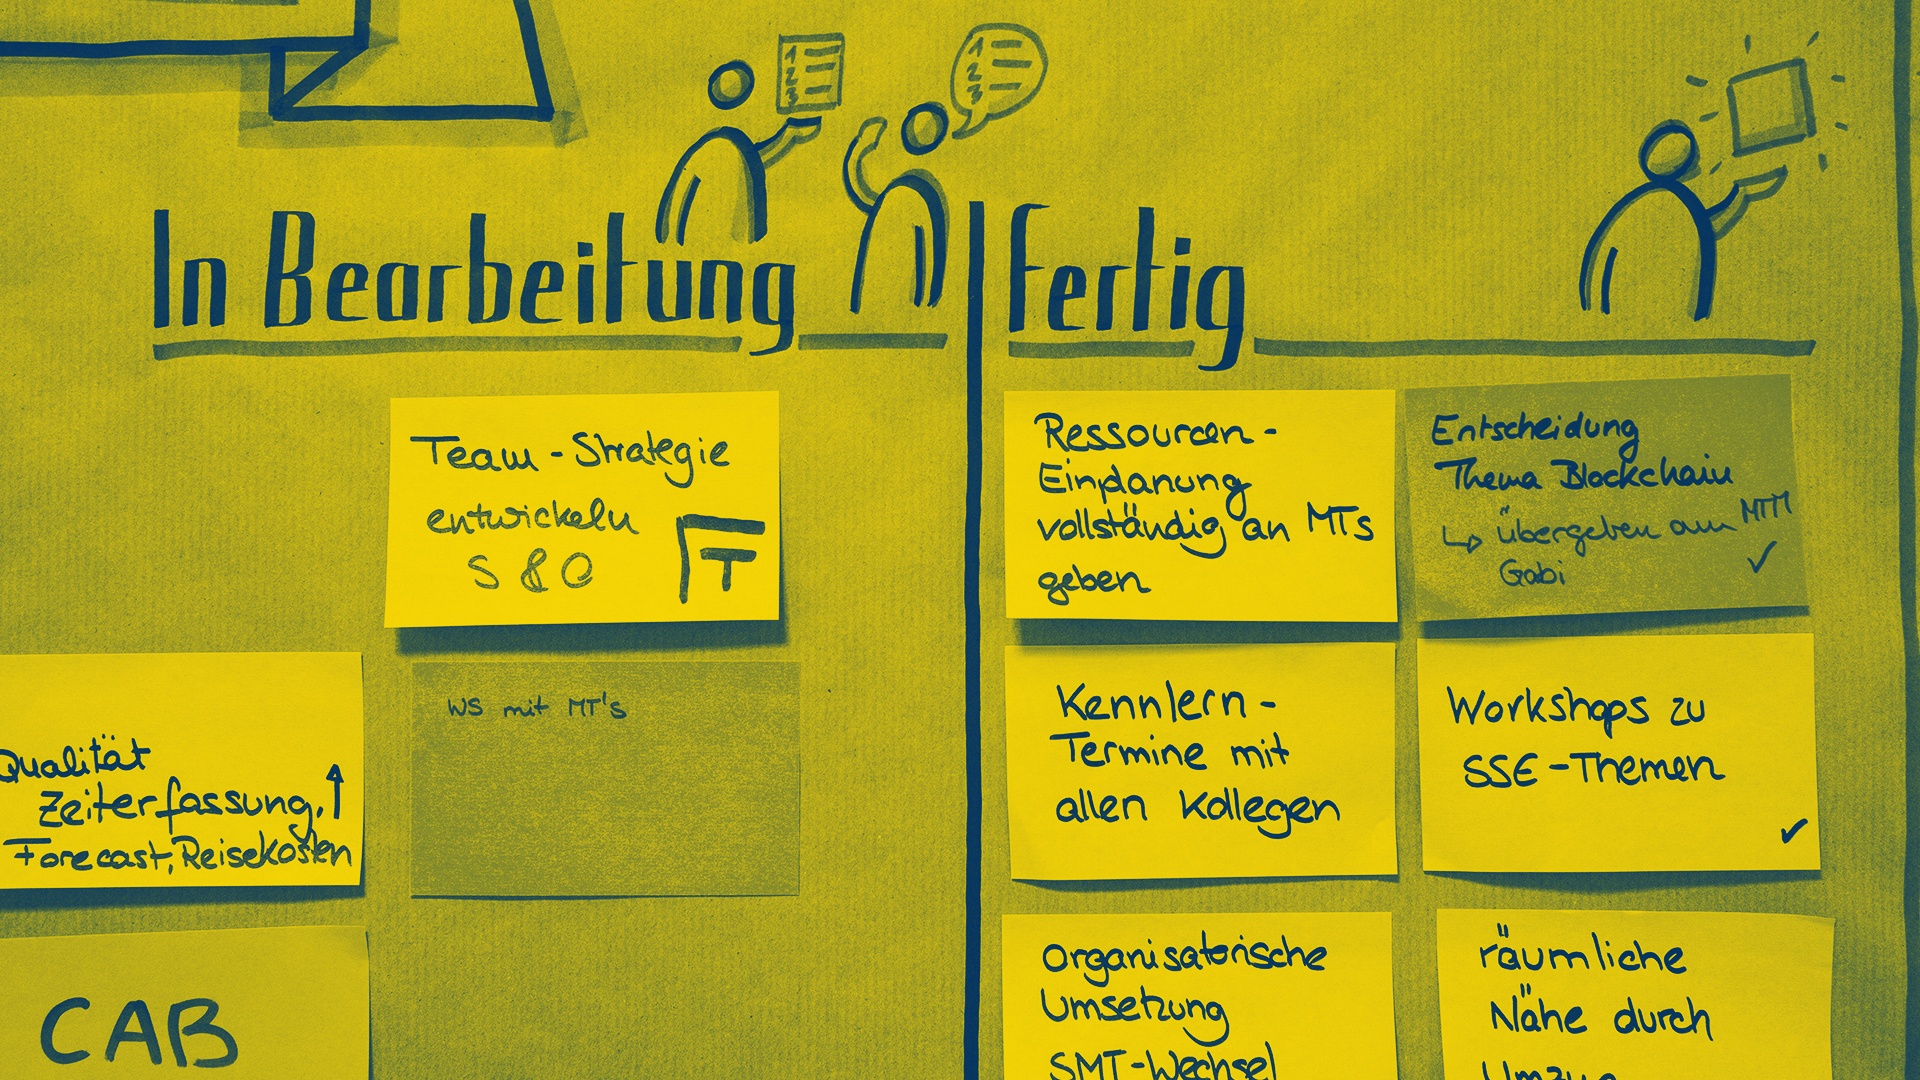 1
2
3
1
2
3
In Bearbeitung
Fertig
Team-Strategie
entwickeln
S & C
FT
WS mit MT's
Qualität
Zeiterfassung,
Forecast, Reisekosten
CAB
Ressourcen-
Einplanung
vollständig an MTs
geben
Entscheidung
Thema Blockchain
übergeben am MTM
Gabi
Kennlern-
Termine mit
allen Kollegen
Workshops zu
SSE-Themen
Organisatorische
Umsetzung
SMT-Wechsel
räumliche
Nähe durch
Umzug